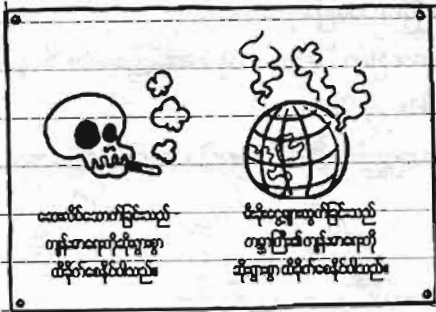 ဆေးလိပ်သောက်ခြင်းသည်
ကျန်းမာရေးကိုဆိုးရွားစွာ
ထိခိုက်စေနိုင်ပါသည်။
မီးခိုးငွေ့များထွက်ခြင်းသည်
ကမ္ဘာကြီး၏ ကျန်းမာရေးကို
ဆိုးရွားစွာ ထိခိုက်စေနိုင်ပါသည်။